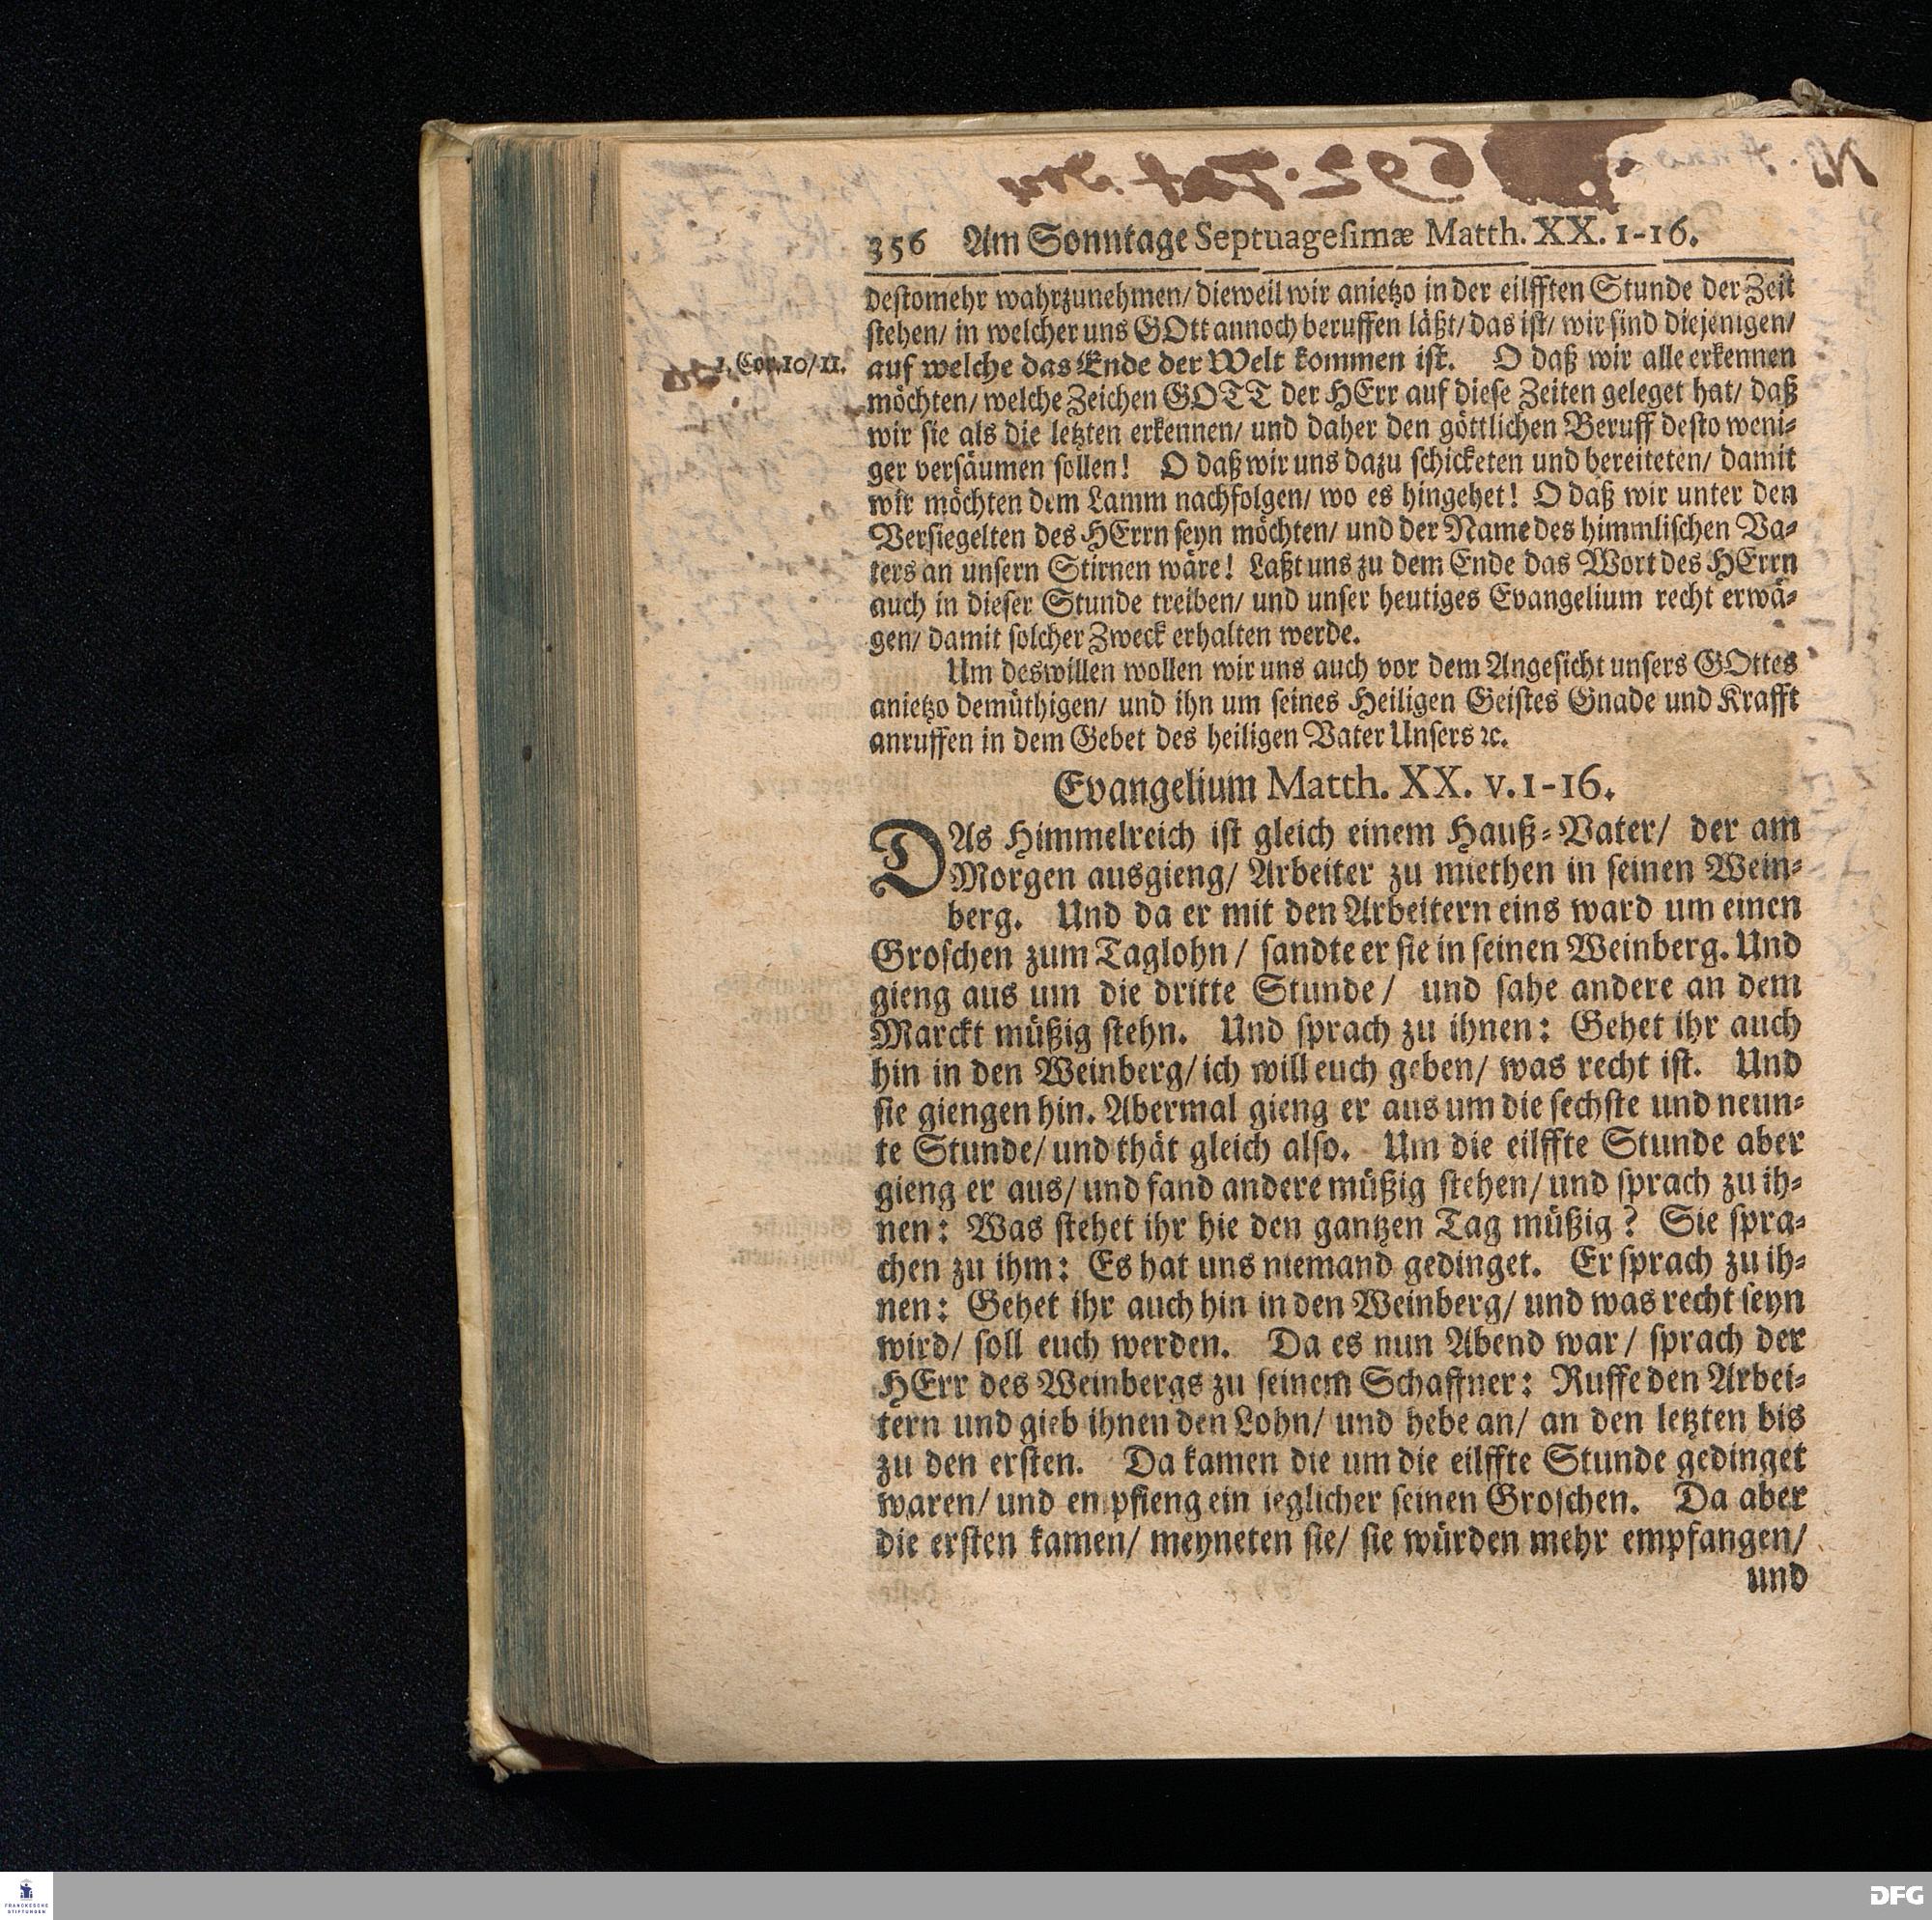 356 Am Sonntage Septuagesimæ Matth. XX. 1-16.
destomehr wahrzunehmen/ dieweil wir anietzo in der eilfften Stunde der Zeit
stehen/ in welcher uns GOtt annoch beruffen läßt/ das ist/ wir sind diejenigen/
1. Cor. 10/11.
auf welche das Ende der Welt kommen ist. O daß wir alle erkennen
möchten/ welche Zeichen GOTT der HErr auf diese Zeiten geleget hat/ daß
wir sie als die letzten erkennen/ und daher den göttlichen Beruff desto weni-
ger versäumen sollen! O daß wir uns dazu schicketen und bereiteten/ damit
wir möchten dem Lamm nachfolgen/ wo es hingehet! O daß wir unter den
Versiegelten des HErrn seyn möchten/ und der Name des himmlischen Va-
ters an unsern Stirnen wäre! Laßt uns zu dem Ende das Wort des HErrn
auch in dieser Stunde treiben/ und unser heutiges Evangelium recht erwä-
gen/ damit solcher Zweck erhalten werde.
Um deswillen wollen wir uns auch vor dem Angesicht unsers GOttes
anietzo demüthigen/ und ihn um seines Heiligen Geistes Gnade und Krafft
anruffen in dem Gebet des heiligen Vater Unsers ꝛc.
Evangelium Matth. XX. v. 1-16.
DAs Himmelreich ist gleich einem Hauß-Vater/ der am
Morgen ausgieng/ Arbeiter zu miethen in seinen Wein-
berg. Und da er mit den Arbeitern eins ward um einen
Groschen zum Taglohn/ sandte er sie in seinen Weinberg. Und
gieng aus um die dritte Stunde/ und sahe andere an dem
Marckt müßig stehn. Und sprach zu ihnen: Gehet ihr auch
hin in den Weinberg/ ich will euch geben/ was recht ist. Und
sie giengen hin. Abermal gieng er aus um die sechste und neun-
te Stunde/ und thät gleich also. Um die eilffte Stunde aber
gieng er aus/ und fand andere müßig stehen/ und sprach zu ih-
nen: Was stehet ihr hie den gantzen Tag müßig? Sie spra-
chen zu ihm: Es hat uns niemand gedinget. Er sprach zu ih-
nen: Gehet ihr auch hin in den Weinberg/ und was recht seyn
wird/ soll euch werden. Da es nun Abend war/ sprach der
HErr des Weinbergs zu seinem Schaffner: Ruffe den Arbei-
tern und gieb ihnen den Lohn/ und hebe an/ an den letzten bis
zu den ersten. Da kamen die um die eilffte Stunde gedinget
waren/ und empfieng ein ieglicher seinen Groschen. Da aber
die ersten kamen/ meyneten sie/ sie würden mehr empfangen/
und
FRANCKESCHE
STIFTUNGEN
DFG